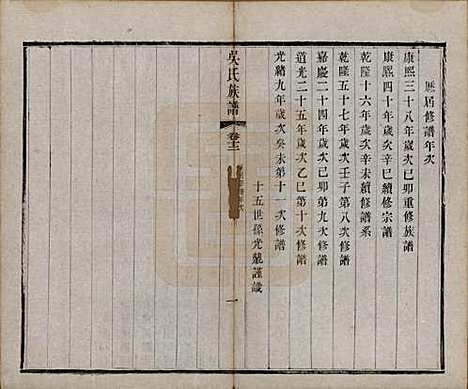 歷屆修譜年次
康熙三十八年歲次己卯重修族譜
康熙四十年歲次辛巳續修宗譜
乾隆十六年歲次辛未續修譜系
乾隆五十七年歲次壬子第八次修譜
嘉慶二十四年歲次己卯第九次修譜
道光二十五年歲次乙巳第十次修譜
光緒九年歲次癸未第十一次修譜
十五世孫光
謹識
吳氏族譜
卷十二
年次
一